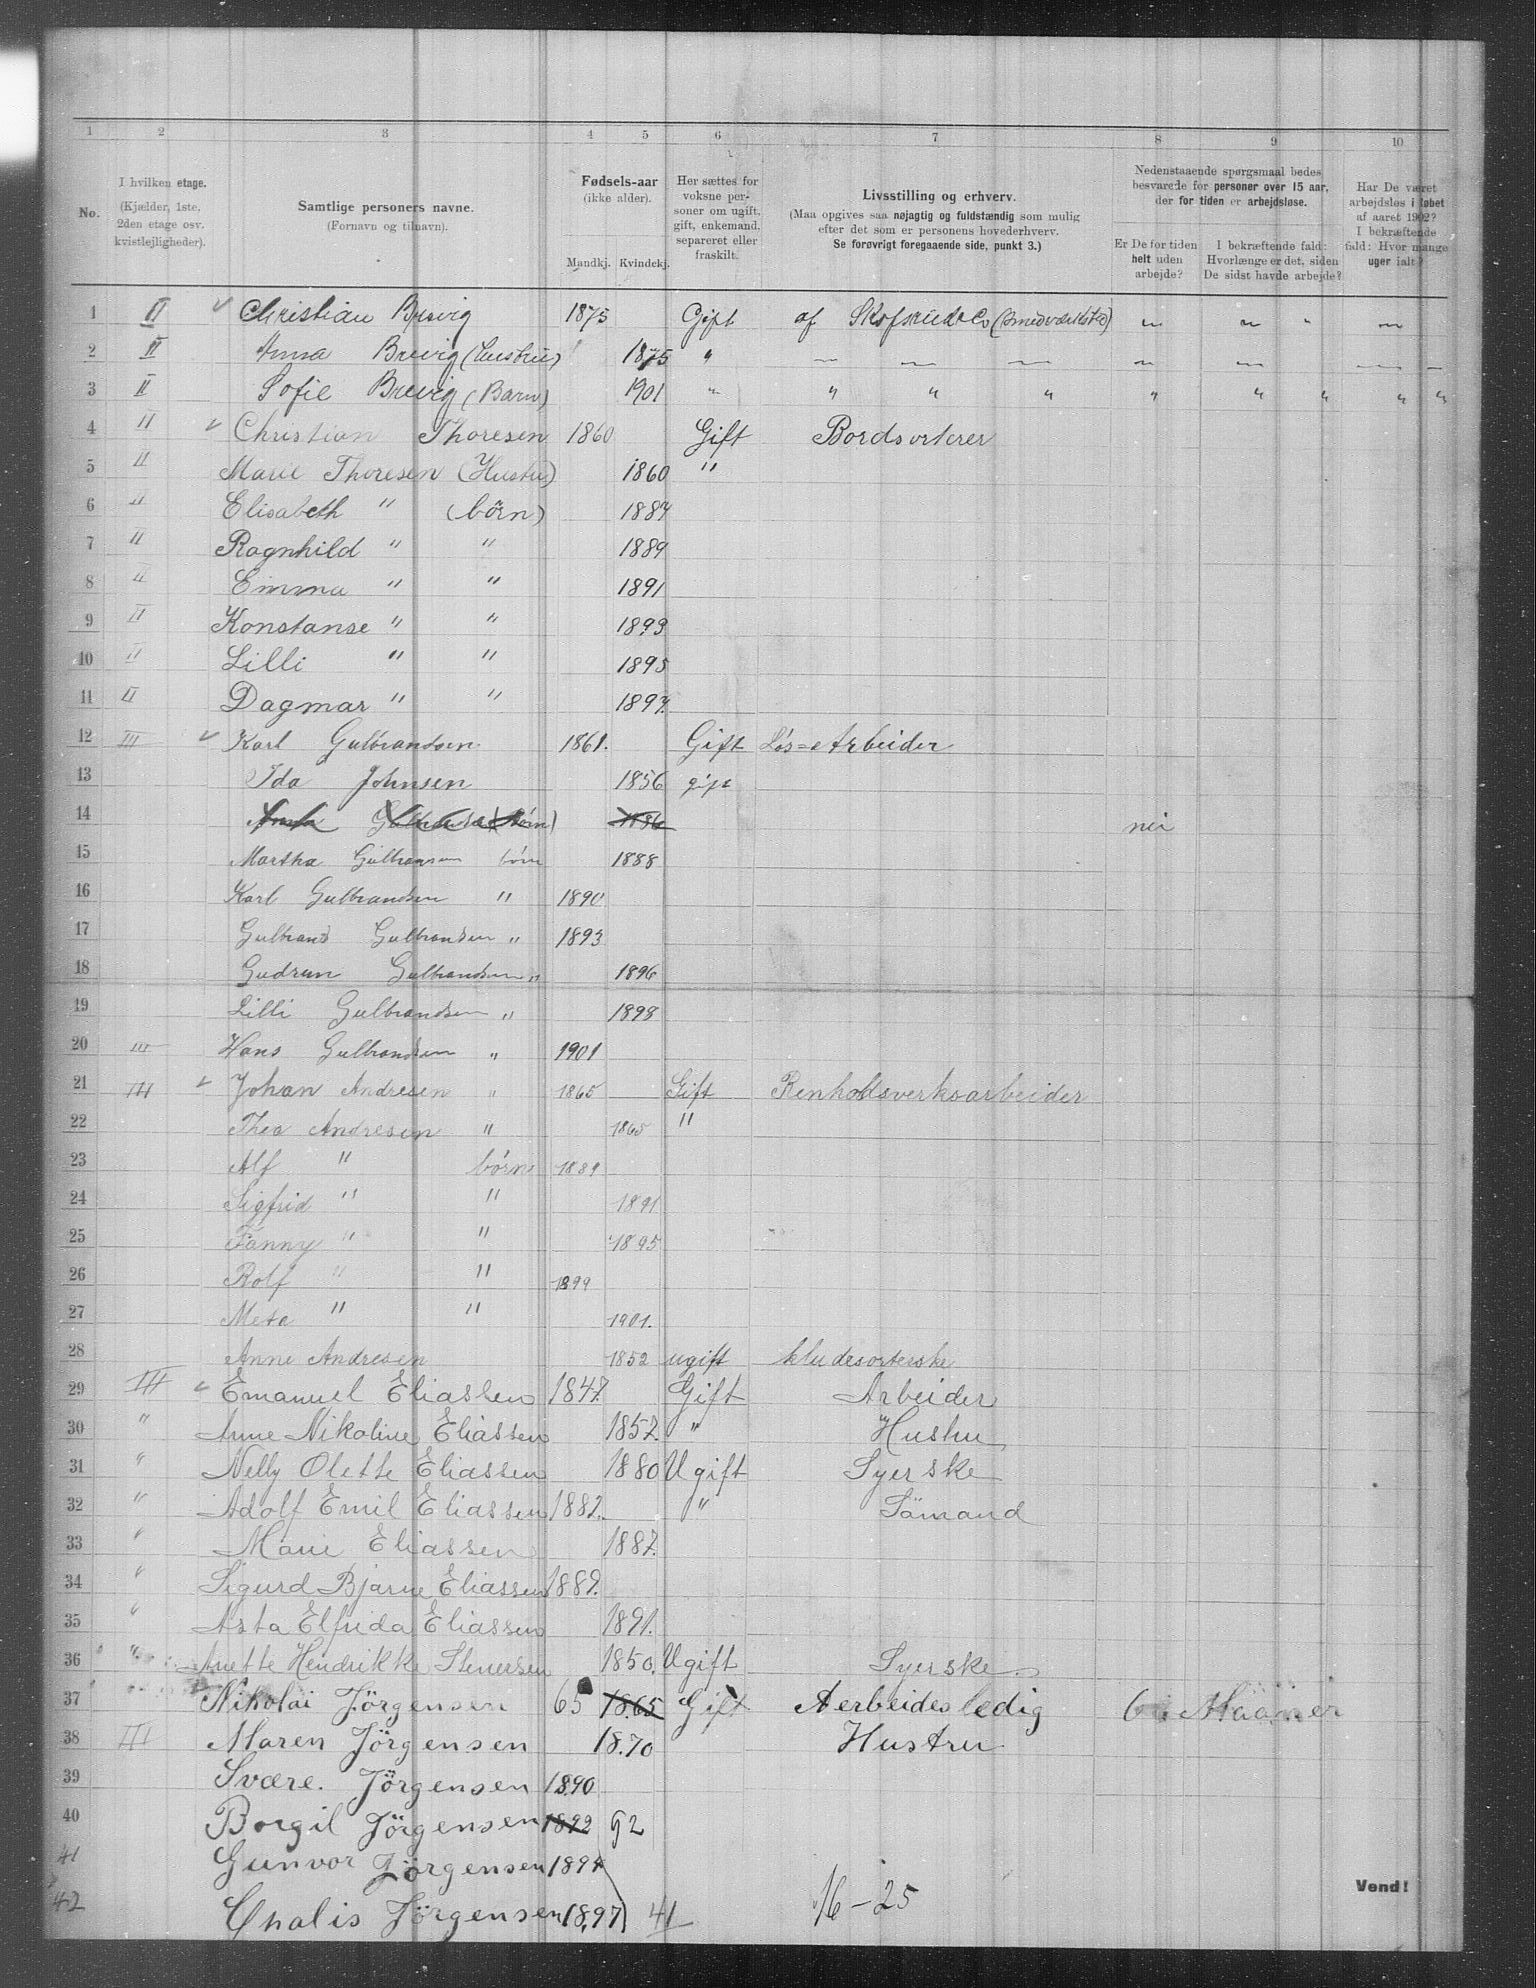 1 2 3 4 5 6 7 8 9 10
No.
I hvilken etage.
(Kjælder, 1ste,
2den etage osv.
kvistlejligheder).
Samtlige personers navne.
(Fornavn og tilnavn).
Fødsels-aar
(ikke alder).
Mandkj. Kvindekj.
Her sættes for
voksne per-
soner om ugift,
gift, enkemand,
separeret eller
fraskilt.
Livsstilling og erhverv.
(Maa opgives saa nøjagtig og fuldstændig som mulig
efter det som er personens hovederhverv.
Se forøvrigt foregaaende side, punkt 3.)
Nedenstaaende spørgsmaal bedes
besvarede for personer over 15 aar,
der for tiden er arbejdsløse.
Er De for tiden
helt uden
arbejde?
I bekræftende fald:
Hvorlænge er det, siden
De sidst havde arbejde?
Har De været
arbejdsløs i løbet
af aaret 1902?
I bekræftende
fald: Hvor mange
uger ialt?
1 II Christian Brevig 1875 Gift af
2 II Anna Brevig (hustru) 1875 "
3 II Sofie Brevig (Barn) 1901 " " " " " " " " "
4 II Christian Thoresen 1860 Gift Bordsorterer
5 II Marie Thoresen (Hustru) 1860 "
6 II Elisabeth " (börn) 1887
7 II Ragnhild " " 1889
8 II Emma " " 1891
9 II Konstanse " " 1893
10 II Lilli " " 1895
11 II Dagmar " " 1897.
12 III Karl Gulbrandsen 1861. Gift Løs=Arbeider
13 Ida Johnsen 1856 gift
14 1886 nei
15 Martha Gulbransen børn 1888
16 Karl Gulbrandsen " 1890
17 Gulbrand Gulbrandsen " 1893
18 Gudrun Gulbrandsen " 1896
19 Lilli Gulbrandsen " 1898
20 III Hans Gulbrandsen " 1901
21 III Johan Andresen " 1865 Gift Renholdsverksarbeider
22 Thea Andresen " 1865 "
23 Alf " børn 1889
24 Sigfrid " " 1891
25 Fanny " " 1895
26 Rolf " " 1899
27 Meta " " 1901.
28 Anne Andresen 1852 ugift kludesorterske
29 III Emanuel Eliassen 1847. Gift Arbeider
30 " Anne Nikoline Eliassen 1857. " Hustru
31 " Nelly Olette Eliassen 1880 Ugift Syerske
32 " Adolf Emil Eliassen 1882. " Sömand
33 " Marie Eliassen 1887.
34 " Sigurd Bjarne Eliassen 1889.
35 " Asta Elfrida Eliassen 1891.
36 " Anette Hendrikke Stenersen 1850. Ugift Syerske
37 Nikolai Jörgensen 65 1865 Gift Aerbeidesledig 6 Maaner
38 III Maren Jörgensen 18.70 Hustru.
39 Svære. Jörgensen 1890
40 Borgil Jörgensen 1892 92
41 Gunvor Jörgensen 1894
42 Chalis Jörgensen 18,97 41
16-25
Vend!